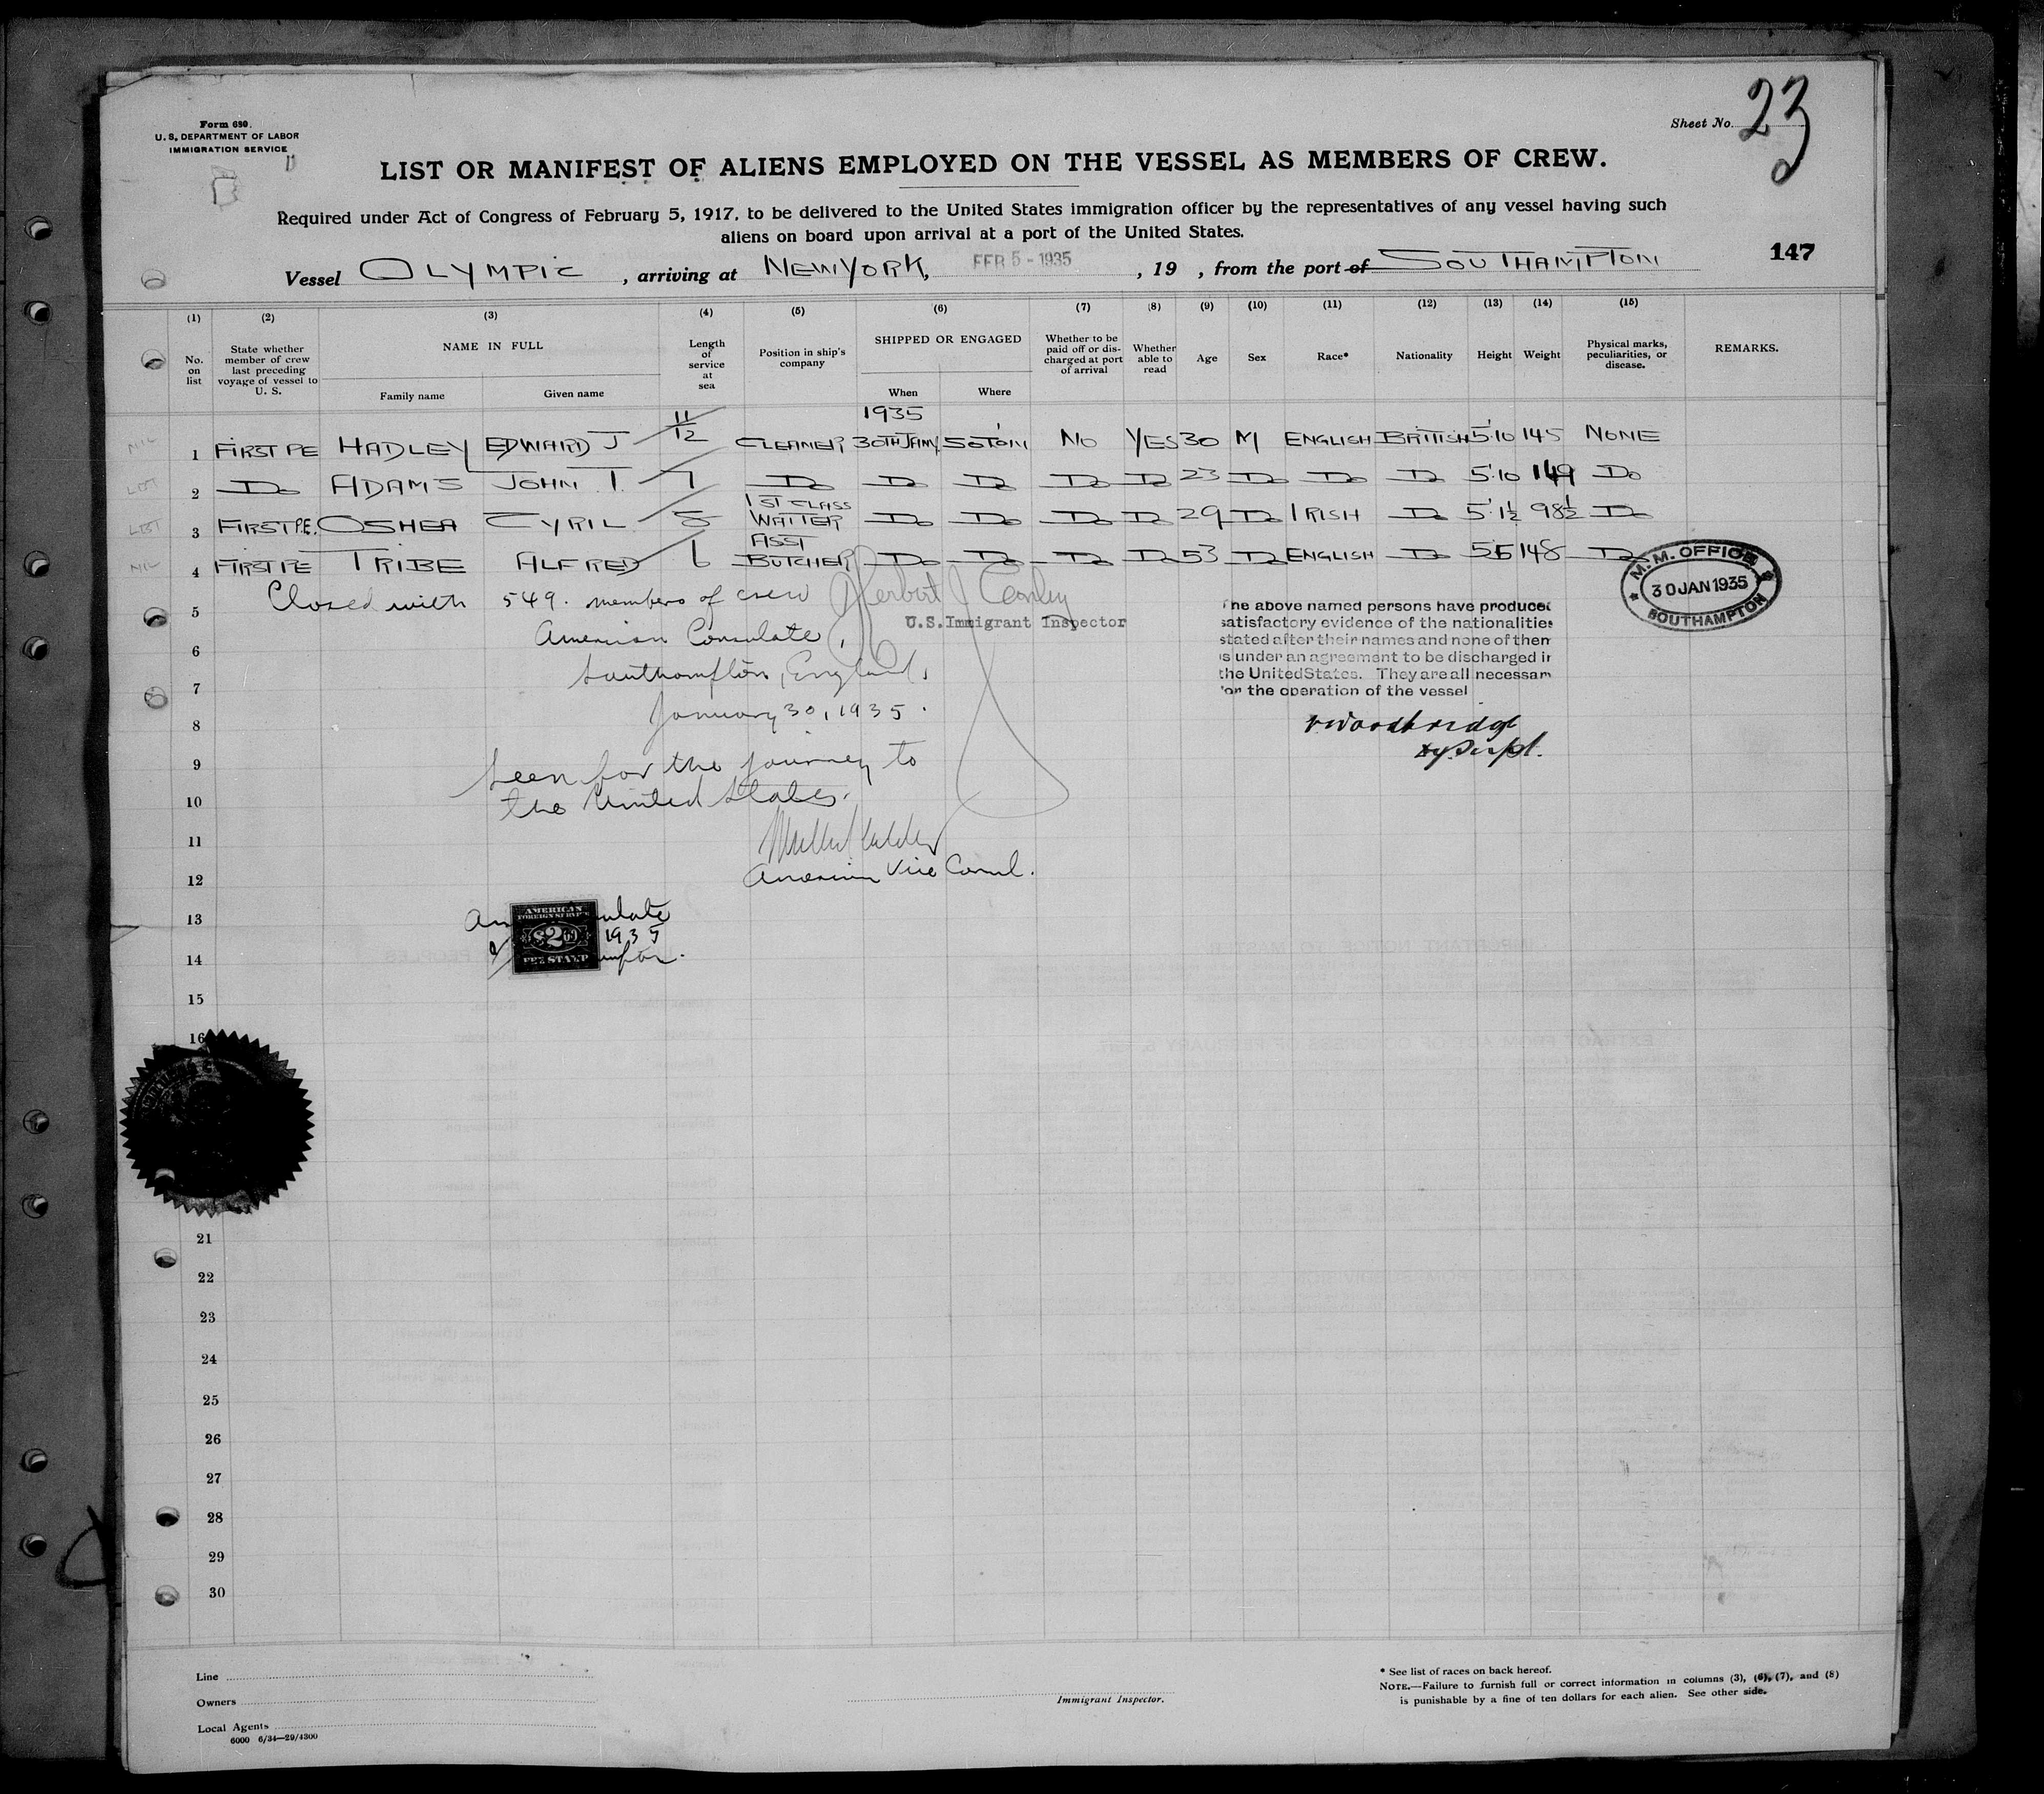 Form 680.
U. S. DEPARTMENT OF LABOR
IMMIGRATION SERVICE
Sheet No. 23
LIST OR MANIFEST OF ALIENS EMPLOYED ON THE VESSEL AS MEMBERS OF CREW.
Required under Act of Congress of February 5, 1917, to be delivered to the United States immigration officer by the representatives of any vessel having such
aliens on board upon arrival at a port of the United States.
147
Vessel OLYMPIC, arriving at NEW YORK, FEB 5 - 1935, 19 , from the port of SOUTHAMPTON
(1) (2) (3) (4) (5) (6) (7) (8) (9) (10) (11) (12) (13) (14) (15)
No. on list
State whether member of crew last preceding voyage of vessel to U. S.
NAME IN FULL
Family name
Given name
Length of service at sea
Position in ship's company
SHIPPED OR ENGAGED
When
Where
Whether to be paid off or discharged at port of arrival
Whether able to read
Age
Sex
Race*
Nationality
Height
Weight
Physical marks, peculiarities, or disease.
REMARKS.
1935
1 FIRST PE HADLEY EDWARD J 11/12 CLEANER 30TH JANY SOTON NO YES 30 M ENGLISH BRITISH 5'10 145 NONE
2 Do ADAMS JOHN T. 7 Do Do Do Do Do 23 Do Do Do 5'10 149 Do
3 FIRST PE. OSHEA CYRIL 5 1ST CLASS WAITER Do Do Do Do 29 Do IRISH Do 5'1½ 98½ Do
4 FIRST PE TRIBE ALFRED 6 ASST BUTCHER Do Do Do Do 53 Do ENGLISH Do 5'5 148 Do
M.M. OFFICE
30 JAN 1935
SOUTHAMPTON
5 Closed with 549. members of crew Herbert J
U.S. Immigrant Inspector
The above named persons have produced
satisfactory evidence of the nationalities
stated after their names and none of them
is under an agreement to be discharged in
the United States. They are all necessary
for the operation of the vessel
Woodbridge
Dy. Supt.
6 American Consulate,
7 Southampton, England,
8 January 30, 1935.
9 Seen for the journey to
10 the United States.
11
12 American Vice Consul.
13
AMERICAN
FOREIGN SERVICE
$2.00
FEE STAMP
1935
14
15
16
21
22
23
24
25
26
27
28
29
30
Line
Owners
Local Agents
6000 6/34—29/4300
Immigrant Inspector.
* See list of races on back hereof.
NOTE.—Failure to furnish full or correct information in columns (3), (6), (7), and (8)
is punishable by a fine of ten dollars for each alien. See other side.